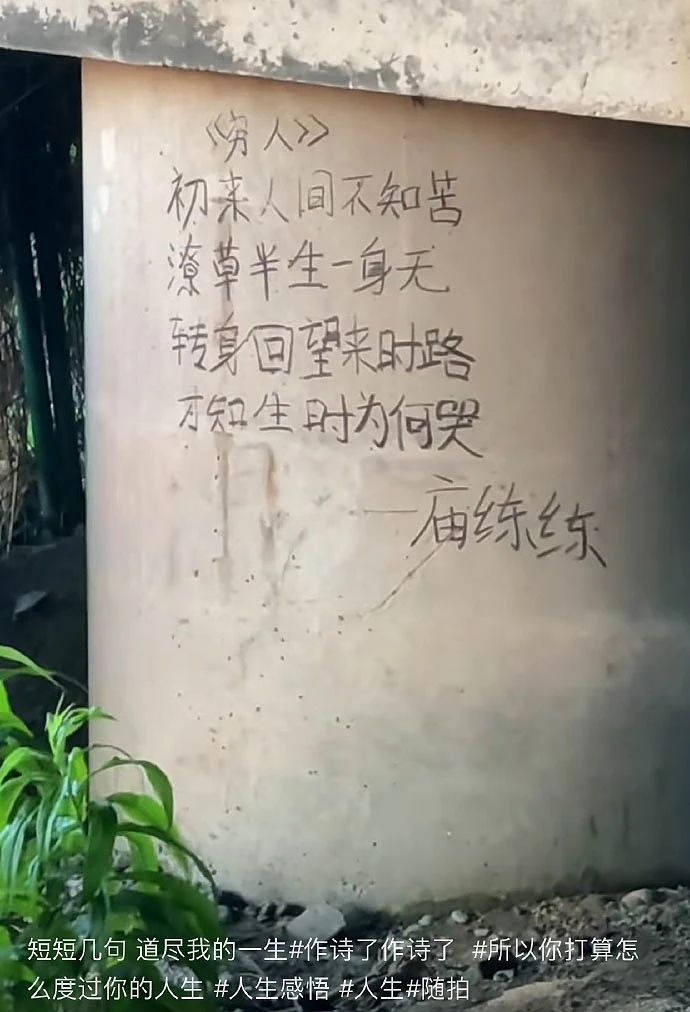 《穷人》
初来人间不知苦
潦草半生一身无
转身回望来时路
才知生时为何哭
—庙练练
短短几句 道尽我的一生#作诗了作诗了 #所以你打算怎
么度过你的人生 #人生感悟 #人生#随拍